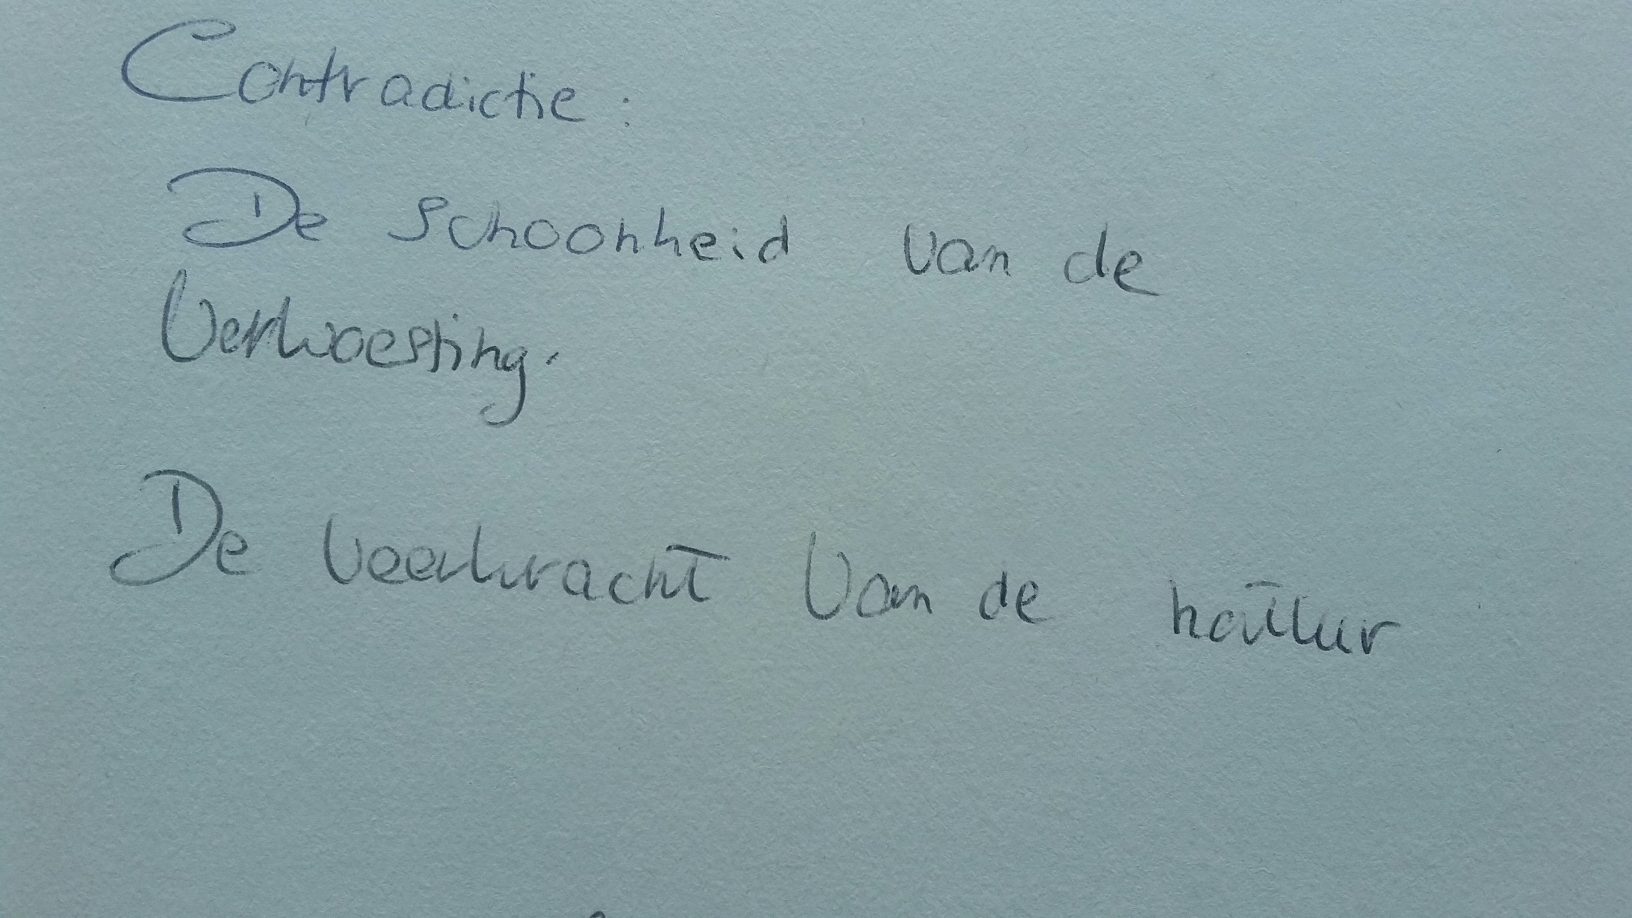 Contradictie:
De schoonheid van de
Verwoesting.
De veerkracht van de natuur